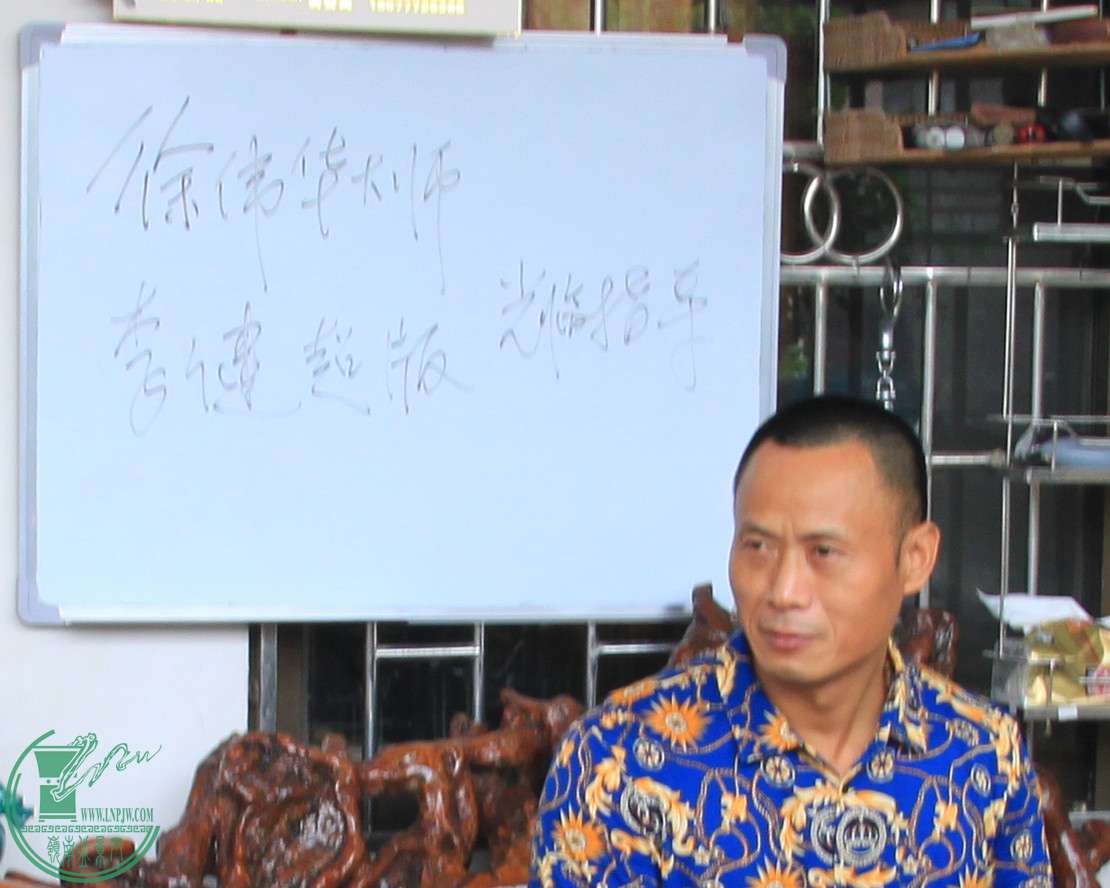 徐伟华大师
李健超版 光临指导
WWW.LNPJW.COM